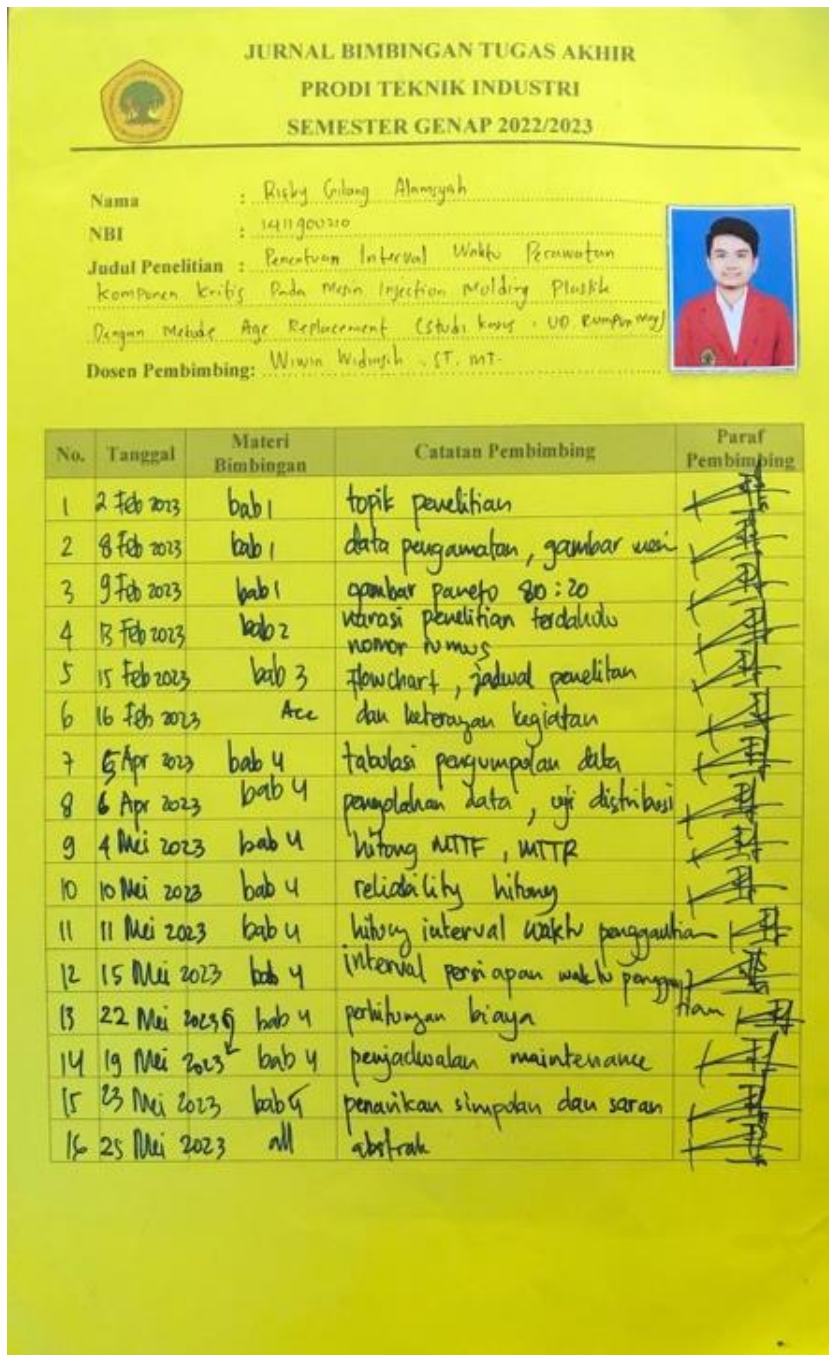 JURNAL BIMBINGAN TUGAS AKHIR
PRODI TEKNIK INDUSTRI
SEMESTER GENAP 2022/2023
Nama : Risky Gilang Alamsyah
NBI : 1411900210
Judul Penelitian : Penentuan Interval Waktu Perawatan
Komponen Kritis Pada Mesin Injection Molding Plastik
Dengan Metode Age Replacement (Studi Kasus : UD
Dosen Pembimbing: Wiwin Widiasih, ST. MT.
No. Tanggal Materi Bimbingan Catatan Pembimbing Paraf Pembimbing
1 2 Feb 2023 bab 1 topik penelitian
2 8 Feb 2023 bab 1 data pengamatan, gambar
3 9 Feb 2023 bab 1 gambar pareto 80:20
4 13 Feb 2023 bab 2 narasi penelitian terdahulu
nomor rumus
5 15 Feb 2023 bab 3 flowchart, jadwal penelitan
6 16 Feb 2023 Acc dan keterangan kegiatan
7 5 Apr 2023 bab 4 tabulasi pengumpulan data
8 6 Apr 2023 bab 4 pengolahan data, uji distribusi
9 4 Mei 2023 bab 4 hitung MTTF, MTTR
10 10 Mei 2023 bab 4 reliability hitung
11 11 Mei 2023 bab 4 hitung interval waktu penggantian
12 15 Mei 2023 bab 4 interval persiapan waktu penggantian
13 22 Mei 2023 bab 4 perhitungan biaya
14 19 Mei 2023 bab 4 penjadwalan maintenance
15 23 Mei 2023 bab 5 penarikan simpulan dan saran
16 25 Mei 2023 all abstrak